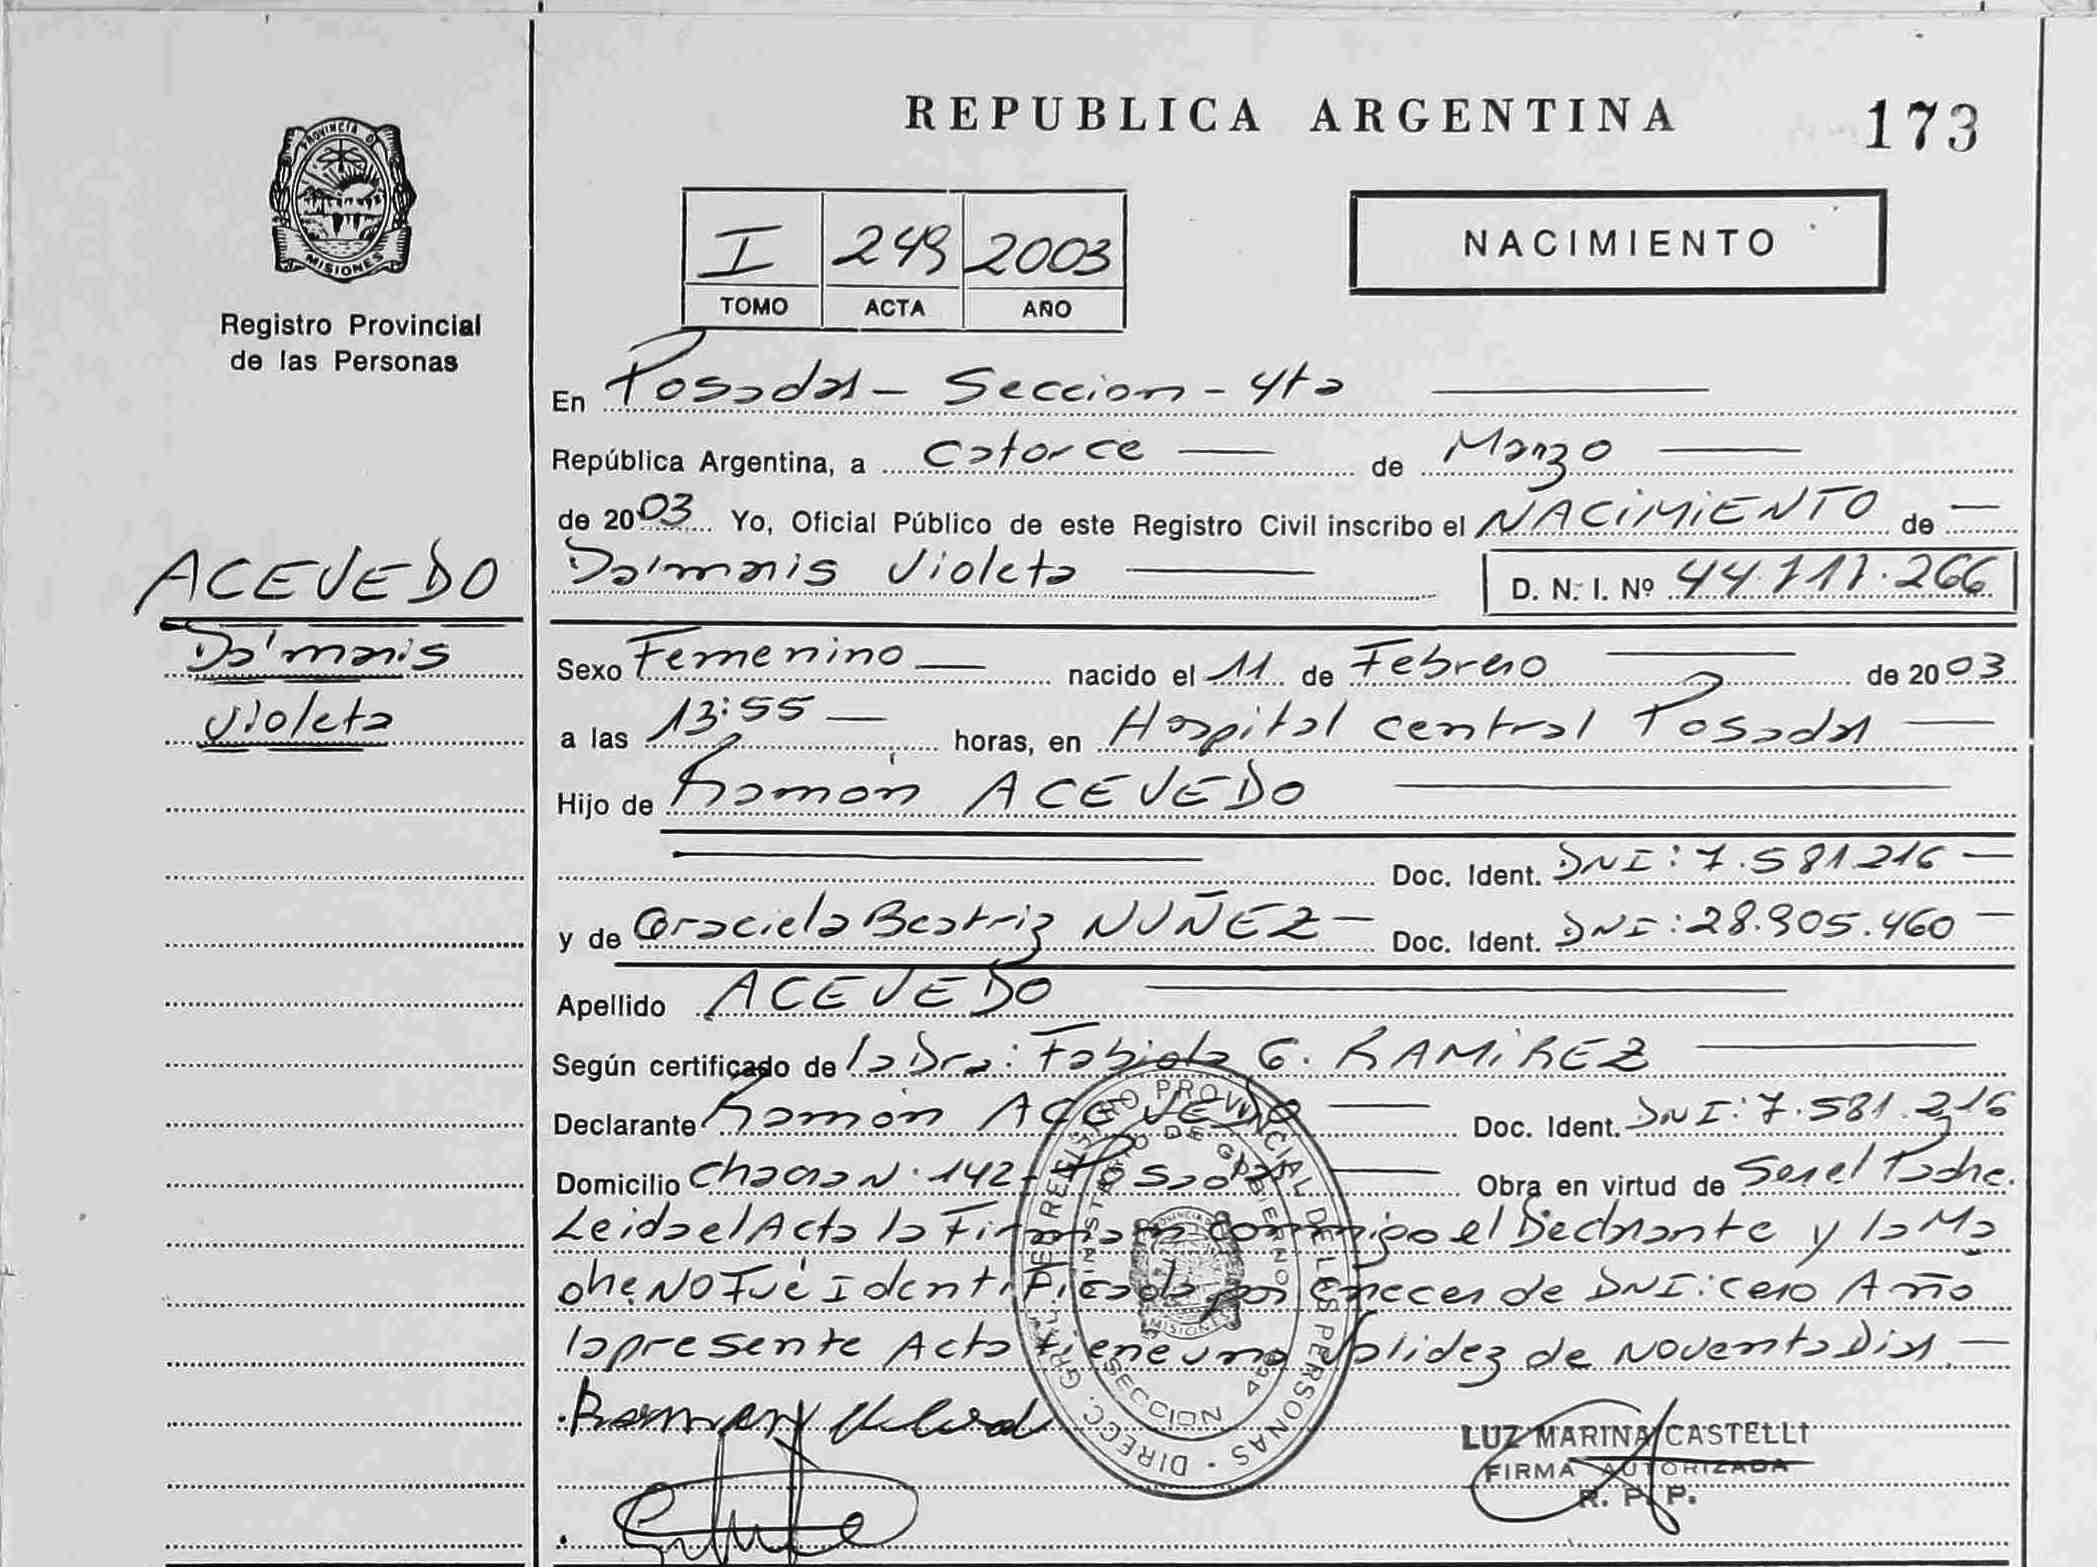 REPUBLICA ARGENTINA
173
PROVINCIA DE
MISIONES
Registro Provincial
de las Personas
I 249 2003
TOMO ACTA AÑO
NACIMIENTO
En Posadas - Seccion - 4ta
República Argentina, a Catorce de Marzo
de 2003 Yo, Oficial Público de este Registro Civil inscribo el NACIMIENTO de
Da'mais Violeta D. N. I. Nº 44.111.266
ACEVEDO
Da'mais
Violeta
Sexo Femenino nacido el 11 de Febrero de 2003
a las 13:55 horas, en Hospital central Posadas
Hijo de Ramón ACEVEDO
Doc. Ident. DNI: 7.581.216
y de Graciela Beatriz NUÑEZ Doc. Ident. DNI: 28.905.460
Apellido ACEVEDO
Según certificado de la Dra: Fabiola G. RAMIREZ
Declarante Ramón ACEVEDO Doc. Ident. DNI: 7.581.216
Domicilio Chacra N° 142 - Posadas Obra en virtud de Ser el Padre.
Leida el Acta la Firma conmigo el Declarante y la Ma
dre NO Fué identificada por carecer de DNI: cero Año
la presente Acta tiene una Validez de Noventa Dias.
DIREC. GRAL. DE REGISTRO PROVINCIAL DE LAS PERSONAS
MINISTERIO DE GOBIERNO
MISIONES
SECCION 4ta
LUZ MARINA CASTELLI
FIRMA AUTORIZADA
R. P. P.